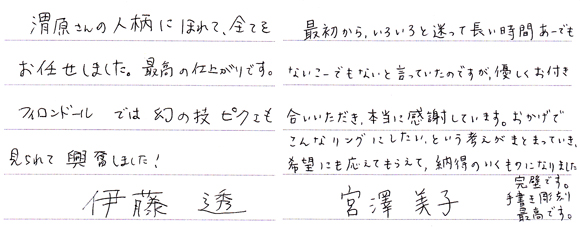 渭原さんの人柄にほれて、全てを
お任せしました。最高の仕上がりです。
フィロンドール では 幻の技 ピクエも
見られて 興奮しました!
伊藤 透
最初から、いろいろと迷って長い時間あーでも
ないこーでもないと言っていたのですが、優しくお付き
合いいただき、本当に感謝しています。おかげで
こんなリングにしたい、という考えがまとまっていき、
希望にも応えてもらえて、納得のいくものになりました
完璧です。
手書き彫刻
最高です。
宮澤 美子